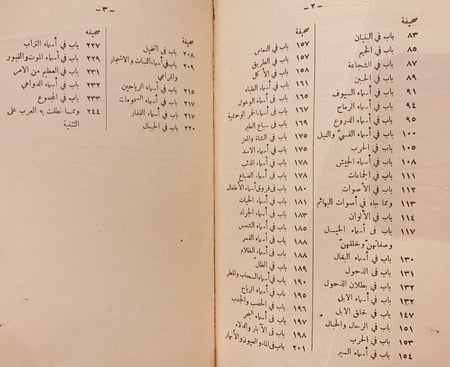 - ٢ -
صحيفة
٨٣ باب في البنيان
٨٥ باب في الخيم
٨٧ باب في الشجاعة
٩٠ باب في الجبن
٩١ باب في أسماء السيوف
٩٤ باب في أسماء الرماح
٩٥ باب في أسماء الدروع
١٠٠ باب في أسماء القسي والنبل
١٠٥ باب في الحرب
١٠٨ باب في أسماء الجيش
١١١ باب في الجماعات
١١٢ باب في الأصوات
١١٣ ومما جاء في أصوات البهائم
١١٤ باب في الألوان
١١٧ باب في أسماء الخيل
وصفاتهن وخلقهن
١٣٠ باب في أسماء البغال
١٣١ باب في الدحول
١٣٢ باب في بطلان الدحول
١٣٢ باب في أسماء الابل
١٤٧ باب في خلق الابل
١٥١ باب في الرحال والحبال
١٥٣ باب في الحرب
١٥٤ باب في أسماء السير
صحيفة
١٥٧ باب في النعاس
١٥٧ باب في الطريق
١٥٨ باب في الأكل
١٦١ باب في أسماء الظباء
١٦٥ باب في أسماء الوعول
١٦٧ باب في أسماء الحمر الوحشية
١٦٩ باب في سباع الطير
١٧١ باب في الشاة والمعز
١٧٥ باب في أسماء الأسد
١٧٧ باب في أسماء الذئب
١٧٨ باب في أسماء الضباع
١٨٠ باب في فروق أسماء الأطفال
١٨١ باب في أسماء الحيات
١٨٣ باب في أسماء الجراد
١٨٥ باب في أسماء الشمس
١٨٨ باب في أسماء القمر
١٨٨ باب في أسماء الظلام
١٨٩ باب في الظل
١٩٠ باب في أسماء السحاب والمطر
١٩٥ باب في أسماء الرياح
١٩٦ باب في الخصب والجدب
١٩٧ باب في أسماء البحر
١٩٨ باب في الآبار والدلاء
٢٠١ باب في الماء والعيون والأنهار
- ٣ -
صحيفة
٢٠٨ باب في النخيل
٢٠٩ باب في أسماء النبات والاشجار
والمراعي
٢١٥ باب في أسماء الرياحين
٢١٧ باب في أسماء السمومات
٢١٧ باب في أسماء القفار
٢٢٠ باب في الجبال
صحيفة
٢٢٧ باب في أسماء التراب
٢٢٩ باب في أسماء الموت والقبور
٢٣١ باب في العظيم من الأمر
٢٣٢ باب في أسماء الدواهي
٢٣٣ باب في المجموع
٢٤٤ ومما نطقت به العرب على
التثنية